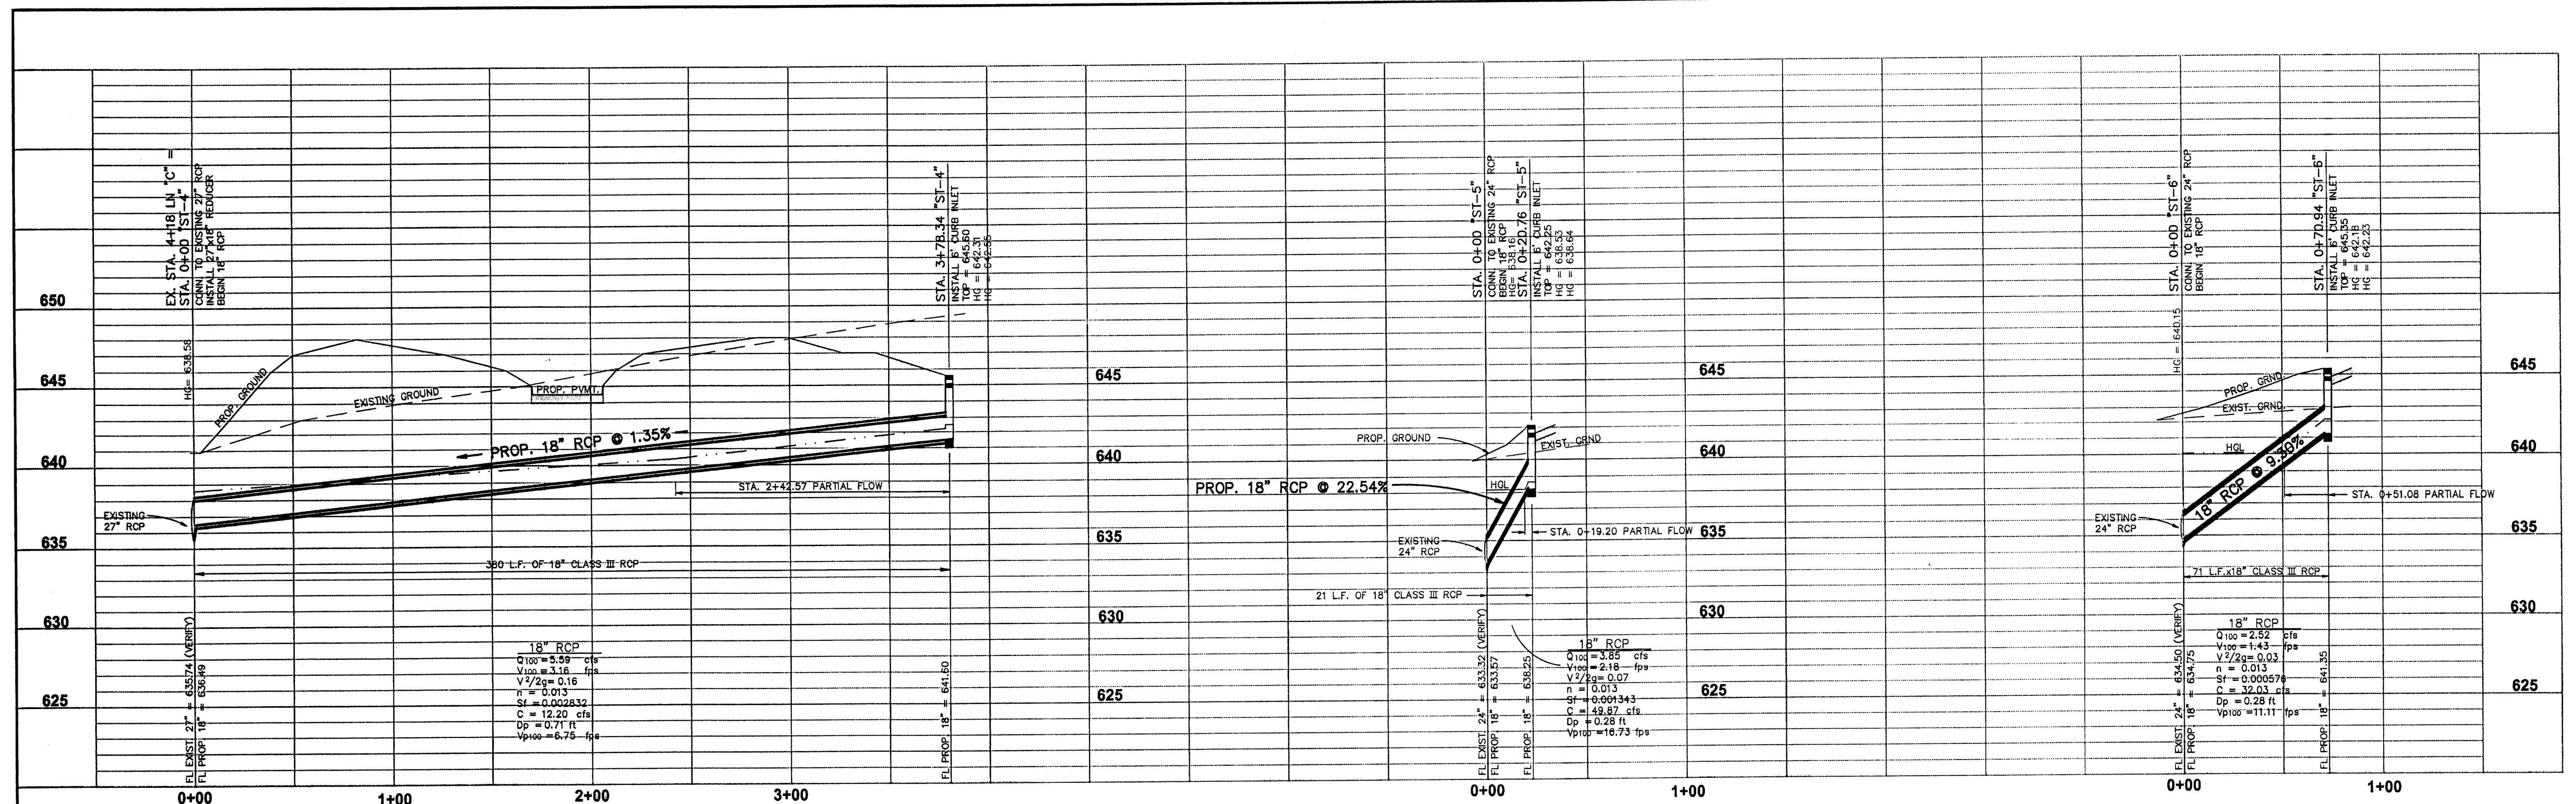 EX. STA. 4+18 LN "C" =
STA. 0+00 "ST-4"
CONN. TO EXISTING 27" RCP
INSTALL 27"x18" REDUCER
BEGIN 18" RCP
HG= 638.58
STA. 3+78.34 "ST-4"
INSTALL 6' CURB INLET
TOP = 645.60
HG = 642.31
HG = 642.55
650
645
640
635
630
625
PROP. GROUND
EXISTING GROUND
PROP. PVMT.
PROP. 18" RCP @ 1.35%
STA. 2+42.57 PARTIAL FLOW
EXISTING
27" RCP
380 L.F. OF 18" CLASS III RCP
FL EXIST. 27" = 635.74 (VERIFY)
FL PROP. 18" = 636.49
18" RCP
Q100 =5.59 cfs
V100 =3.16 fps
V²/2g= 0.16
n = 0.013
Sf =0.002832
C = 12.20 cfs
Dp =0.71 ft
Vp100 =6.75 fps
FL PROP. 18" = 641.60
0+00
1+00
2+00
3+00
645
640
635
630
625
STA. 0+00 "ST-5"
CONN. TO EXISTING 24" RCP
BEGIN 18" RCP
HG= 638.16
STA. 0+20.76 "ST-5"
INSTALL 6' CURB INLET
TOP = 642.25
HG = 638.53
HG = 638.64
PROP. GROUND
EXIST. GRND
HGL
PROP. 18" RCP @ 22.54%
STA. 0+19.20 PARTIAL FLOW
EXISTING
24" RCP
21 L.F. OF 18" CLASS III RCP
FL EXIST. 24" = 633.32 (VERIFY)
FL PROP. 18" = 633.57
FL PROP. 18" = 638.25
18" RCP
Q100 =3.85 cfs
V100 =2.18 fps
V²/2g= 0.07
n = 0.013
Sf =0.001343
C = 49.87 cfs
Dp =0.28 ft
Vp100 =16.73 fps
0+00
1+00
645
640
635
630
625
STA. 0+00 "ST-6"
CONN. TO EXISTING 24" RCP
BEGIN 18" RCP
HG = 640.15
STA. 0+70.94 "ST-6"
INSTALL 6' CURB INLET
TOP = 645.35
HG = 642.18
HG = 642.23
PROP. GRND.
EXIST. GRND.
HGL
18" RCP @ 9.30%
STA. 0+51.08 PARTIAL FLOW
EXISTING
24" RCP
71 L.F.x18" CLASS III RCP
FL EXIST. 24" = 634.50 (VERIFY)
FL PROP. 18" = 634.75
18" RCP
Q100 =2.52 cfs
V100 =1.43 fps
V²/2g= 0.03
n = 0.013
Sf =0.000576
C = 32.03 cfs
Dp =0.28 ft
Vp100 =11.11 fps
FL PROP. 18" = 641.35
0+00
1+00
645
640
635
630
625